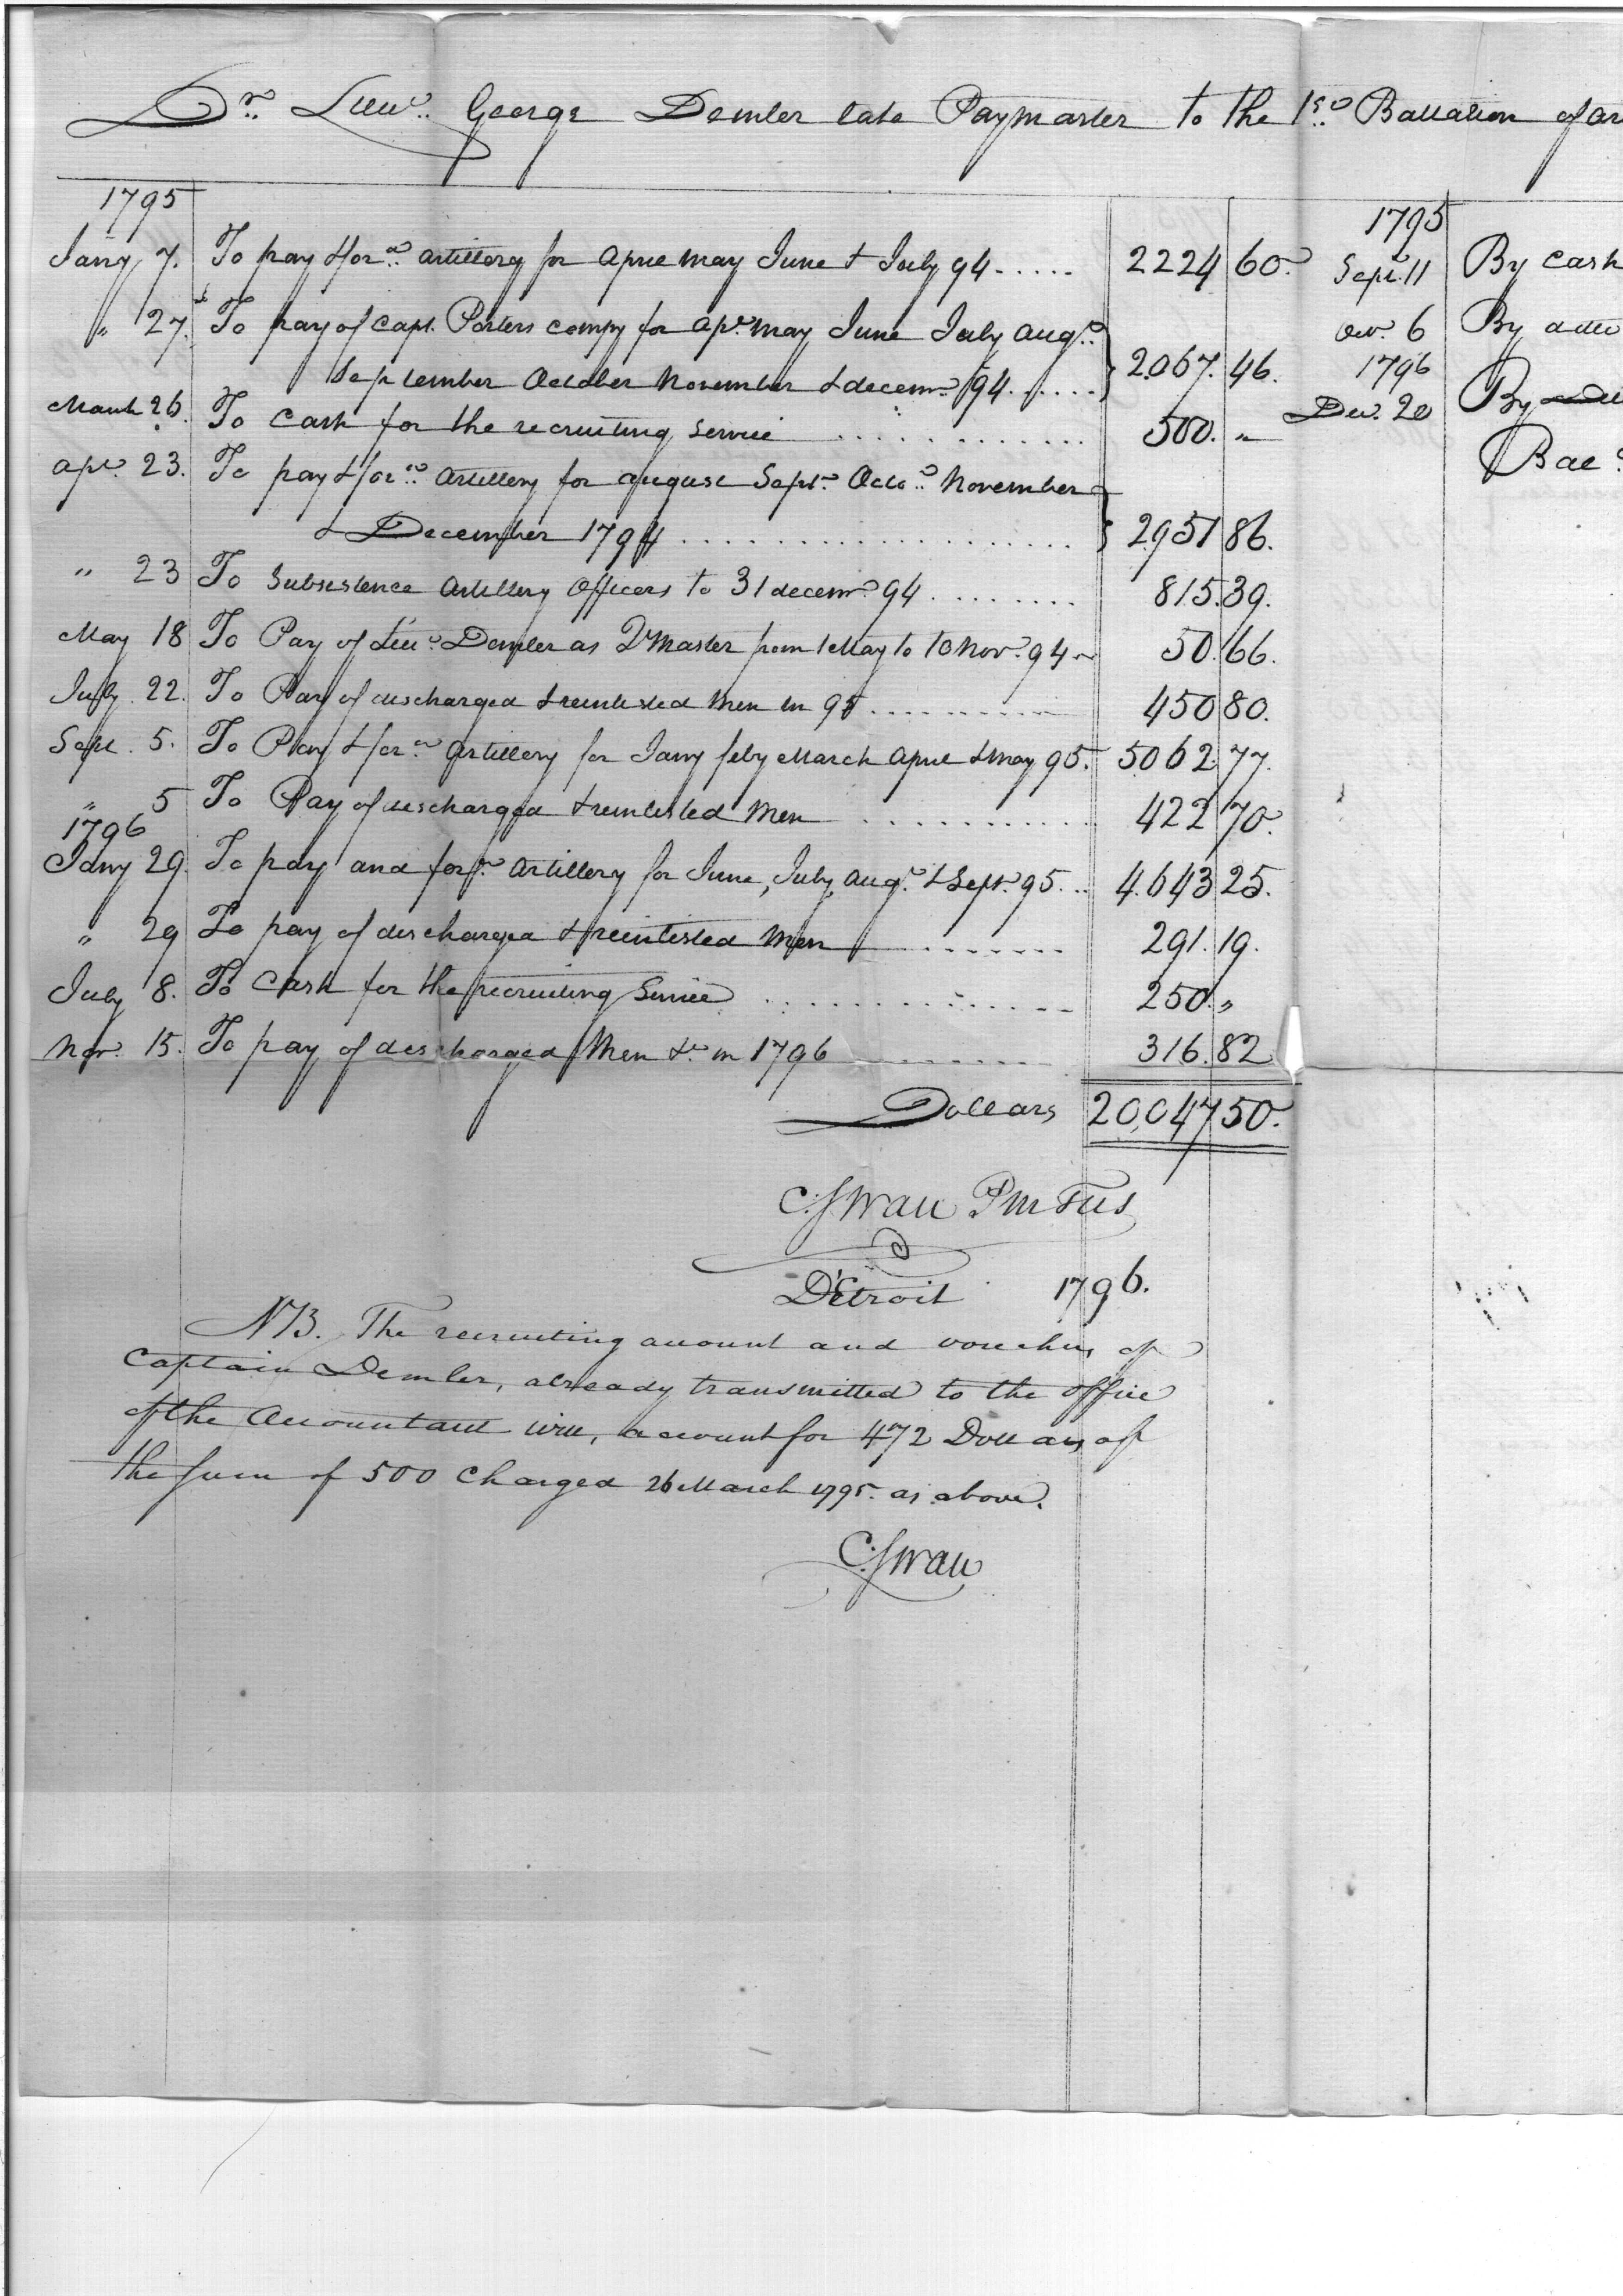 Dr. Lieut. George Demler late Paymaster to the 1st. Battalion of Ar
1795
Jany 7. To pay & for.. artillery for April May June & July 94 ..... 2224 60.
" 27. To pay of Capt. Porters compy for Apl. May June July Augt.
September October November & decemr. 94 ..... 2067. 46.
March 26. To Cash for the recruiting Service ..... 500. "
Apl. 23. To pay & for.. Artillery for august Sept. Octo. November
& December 1794 ..... 2951 86.
" 23 To Subsistence Artillery Officers to 31 decemr. 94 ..... 815.39.
May 18 To Pay of Lieut. Demler as Qr Master from 1 May to 10 Nov. 94 50.66.
July 22. To Pay of discharged & reinlisted Men in 95 ..... 450 80.
Sept. 5. To Pay & for.. artillery for Jany feby March April & May 95. 5062.77.
" 5 To Pay of discharged & reinlisted Men ..... 422 70.
1796
Jany 29. To pay and for.. Artillery for June, July, Augt. & Sept. 95 ... 4.643 25.
" 29 To pay of discharged & reinlisted Men ..... 291. 19.
July 8. To Cash for the recruiting Service ..... 250. "
Nov. 15. To pay of discharged Men &c. in 1796 ..... 316.82
Dollars 20,047 50.
C: Swan PM TUS
D'Etroit 1796.
NB. The recruiting account and vouchers of
Captain Demler, already transmitted to the office
of the Accountant will, account for 472 Dollars of
the sum of 500 Charged 26 March 1795. as above.
C: Swan
1795
Sept. 11 By Cash
Oct. 6 By ditto
1796
Dec. 20 By
Bal